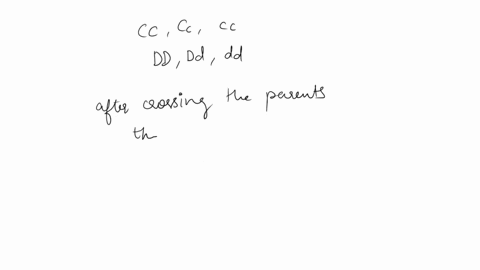 CC, Cc, cc
DD, Dd, dd
after crossing the parents
th